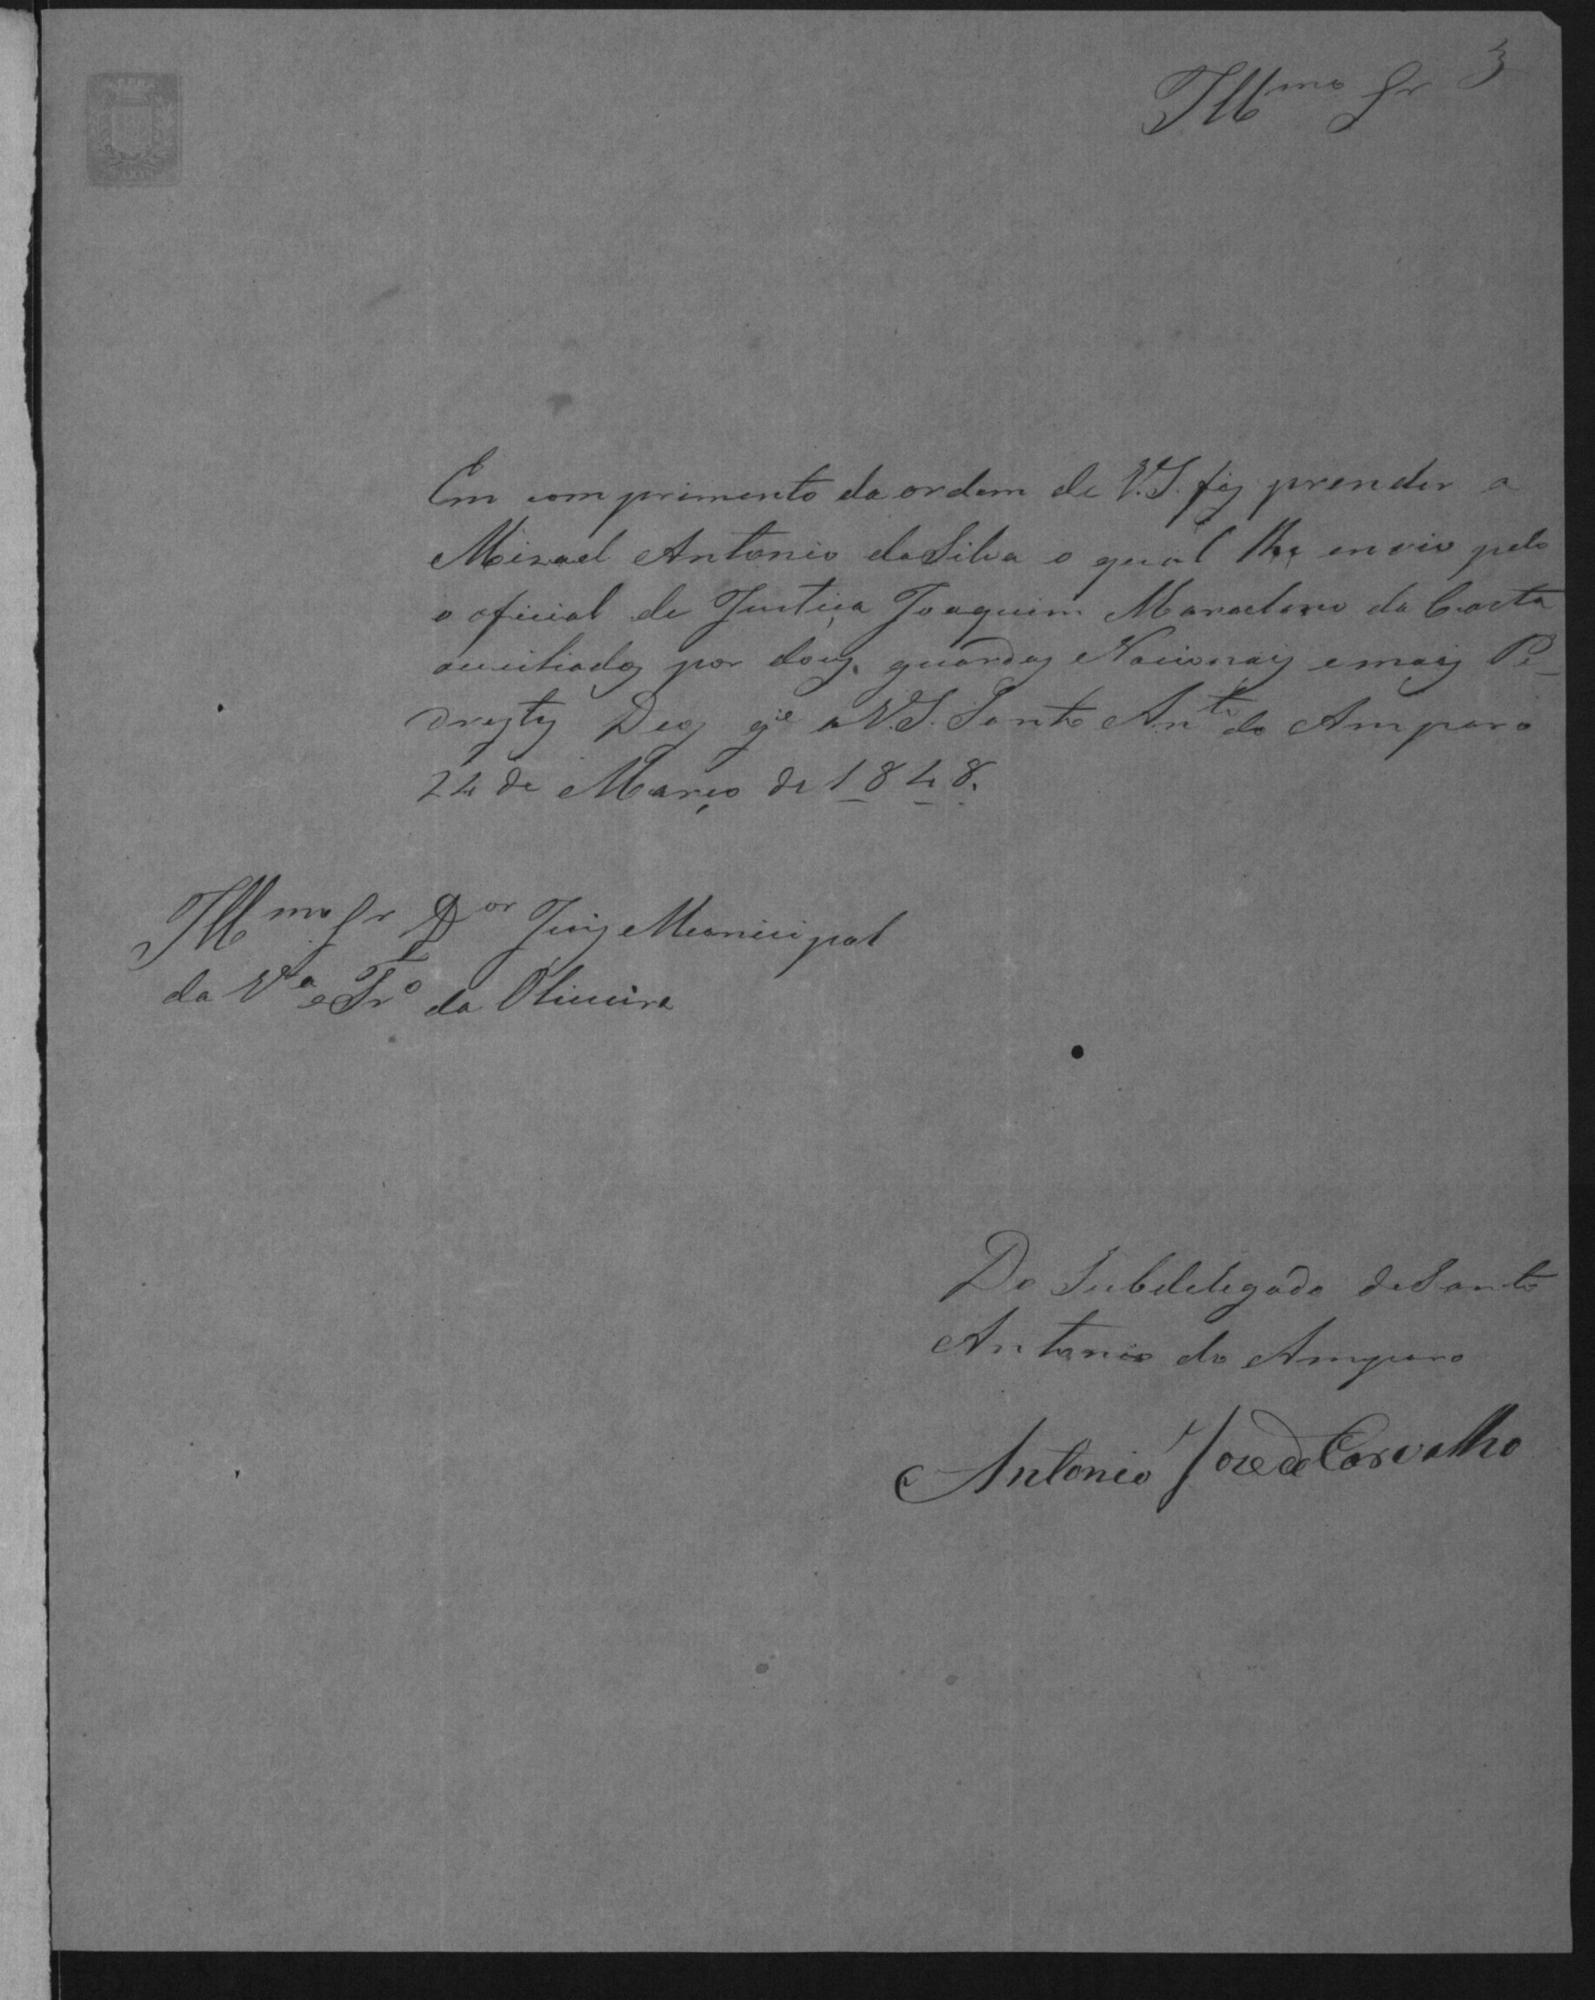 3
Illmo Sr
Em comprimento da ordem de V.S. fiz prender a
Mizael Antonio da Silva o qual lhe envio pelo
o oficial de Justiça Joaquim Marcelino da Costa
auciliados por dous guardas Nacionaes e mais Pe-
destres Deos ge a V.S. Santo Anto do Amparo
24 de Março de 1848.
Illmo Sr Dor Juiz Municipal
da Va e Tro da Oliveira
Do Subdelegado de Santo
Antonio do Amparo
Antonio Joze de Carvalho